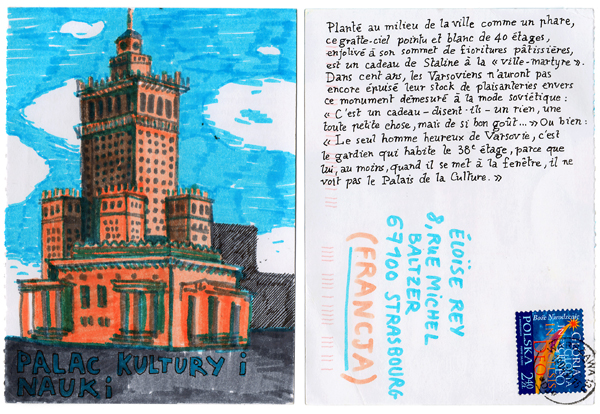 PALAC KULTURY i
NAUKi
Planté au milieu de la ville comme un phare,
ce gratte-ciel pointu et blanc de 40 étages,
enjolivé à son sommet de fioritures pâtissières,
est un cadeau de Staline à la « ville-martyre ».
Dans cent ans, les Varsoviens n'auront pas
encore épuisé leur stock de plaisanteries envers
ce monument démesuré à la mode soviétique :
« C'est un cadeau – disent-ils – un rien, une
toute petite chose, mais de si bon goût... » Ou bien :
« Le seul homme heureux de Varsovie, c'est
le gardien qui habite le 38e étage, parce que
lui, au moins, quand il se met à la fenêtre, il ne
voit pas le Palais de la Culture. »
ÉLOÏSE REY
8, RUE MICHEL
BALTZER
67100 STRASBOURG
(FRANCJA)
Boże Narodzenie
GLORIA
POLSKA